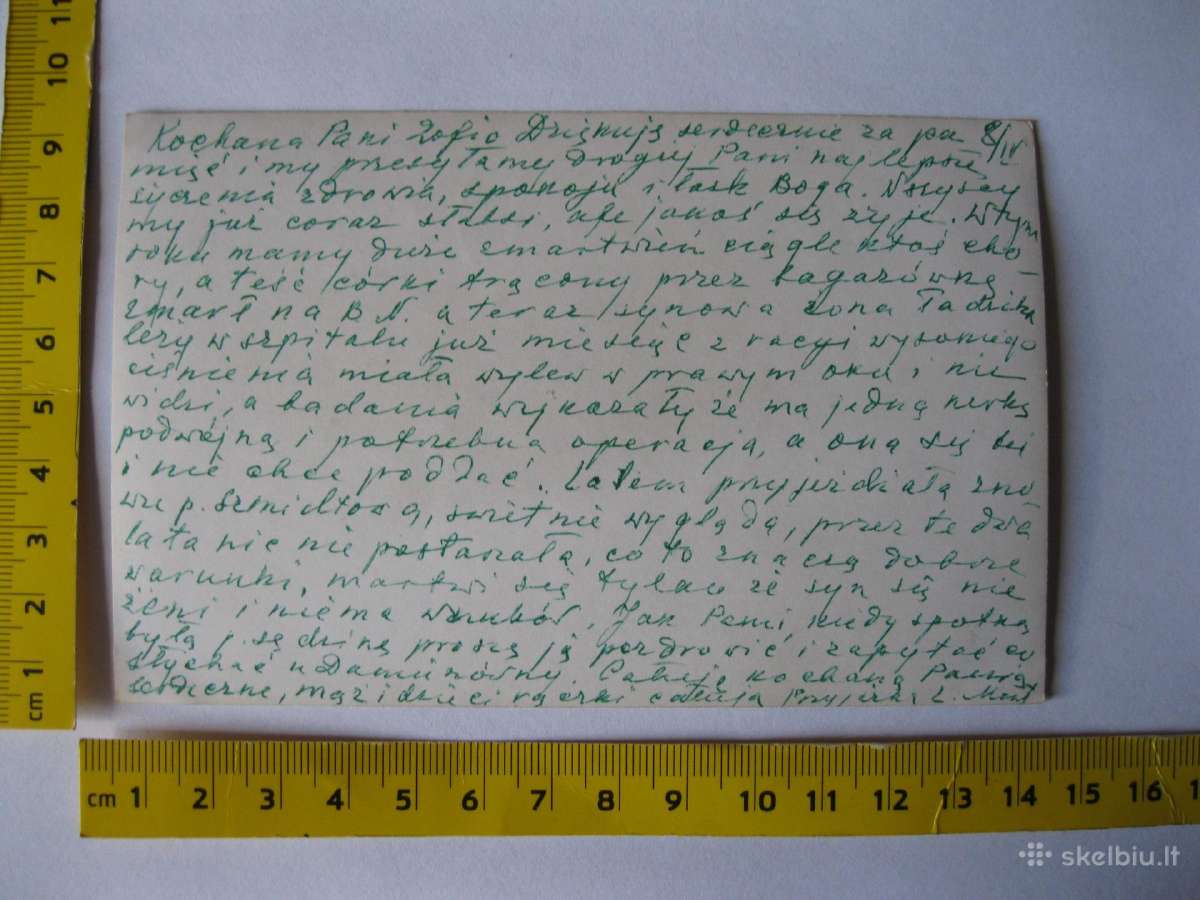 Kochana Pani Zofio Dziękuję serdecznie za pa 8/IV
mięć i my przesyłamy Drogiej Pani najlepsze
życzenia zdrowia, spokoju i łask Boga. Wszyscy
my już coraz słabsi, ale jakoś się żyje. W tym
roku mamy duże zmartwień ciągle ktoś cho-
ry, a teść córki trącony przez bagażówkę
zmarł na B.N. a teraz synowa żona Tadzika
leży w szpitalu już miesiąc z racji wysokiego
ciśnienia miała wylew w prawym oku i nie
widzi, a badania wykazały że ma jedną nerkę
podwójną i potrzebna operacja, a ona się boi
i nie chce poddać. Latem przyjeżdżała zno
wu p. Szmidtowa, świetnie wygląda, przez te dwa
lata nic nie postarzała, co to znaczą dobre
warunki, martwi się tylko że syn się nie
żeni i niema wnuków. Jak Pani kiedy spotka
byłą p. sędzinę proszę ją pozdrowić i zapytać co
słychać u. Całuję kochaną Panią
serdecznie, mąż i dzieci rączki całują L.
cm 1 2 3 4 5 6 7 8 9 10 11
cm 1 2 3 4 5 6 7 8 9 10 11 12 13 14 15 16 1
skelbiu.lt